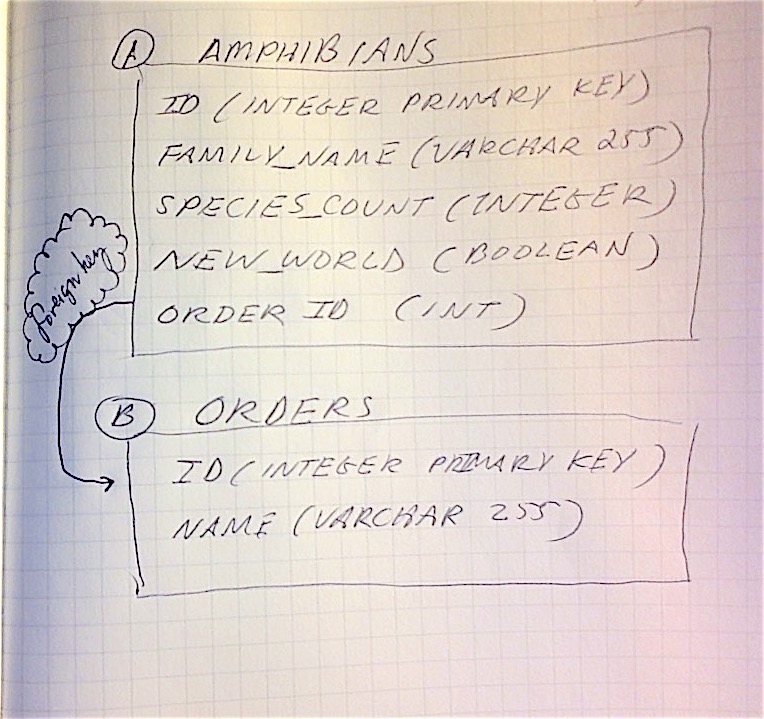 A AMPHIBIANS
ID (INTEGER PRIMARY KEY)
FAMILY_NAME (VARCHAR 255)
SPECIES_COUNT (INTEGER)
NEW_WORLD (BOOLEAN)
ORDER ID (INT)
foreign key
B ORDERS
ID (INTEGER PRIMARY KEY)
NAME (VARCHAR 255)